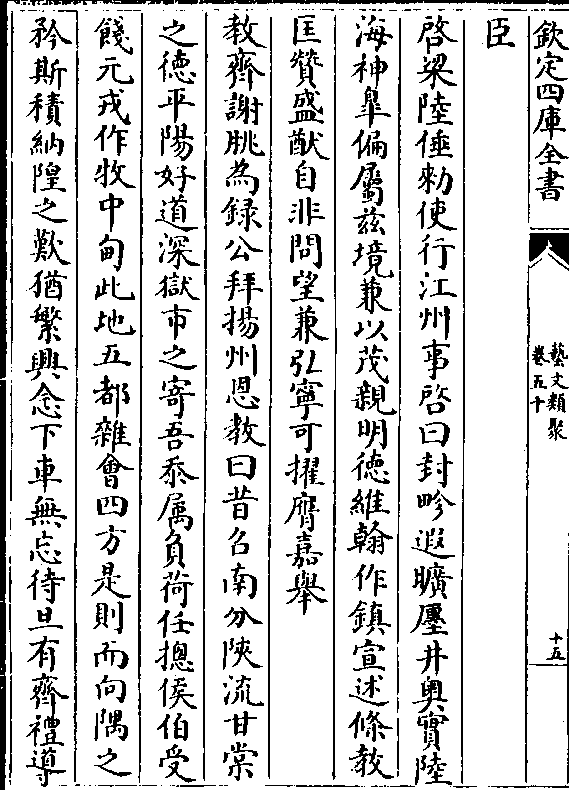 欽定四庫全書
藝文類聚
卷五十
十五
臣
啓梁陸倕勑使行江州事啓曰封畛遐曠廛井奧實陸
海神臯偏屬兹境兼以茂親明徳維翰作鎮宣述條教
匡贊盛猷自非問望兼弘寧可擢膺嘉舉
教齊謝朓為録公拜揚州恩教曰昔召南分陜流甘棠
之徳平陽好道深獄市之寄吾忝属負荷任摠侯伯受
餞元戎作牧中甸此地五都雜㑹四方是則而向隅之
矜斯積納隍之歎猶繁興念下車無忘待旦有齊禮導